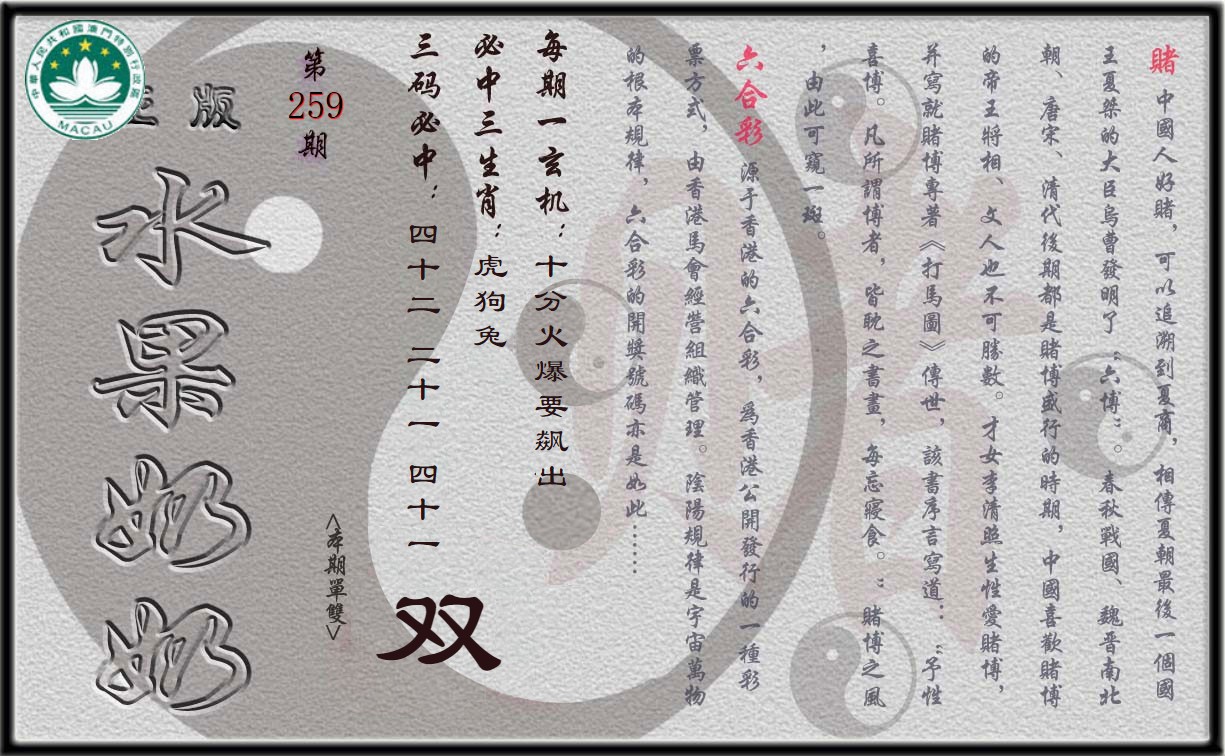 賭 中國人好賭，可以追溯到夏商，相傳夏朝最後一個國
王夏桀的大臣烏曹發明了“六博”。春秋戰國、魏晋南北
朝、唐宋、清代後期都是賭博盛行的時期，中國喜歡賭博
的帝王將相、文人也不可勝數。才女李清照生性愛賭博，
并寫就賭博專著《打馬圖》傳世，該書序言寫道：“予性
喜博。凡所謂博者，皆耽之書畫，每忘寢食。”賭博之風
，由此可窺一斑。
六合彩 源于香港的六合彩，爲香港公開發行的一種彩
票方式，由香港馬會經營組織管理。陰陽規律是宇宙萬物
的根本規律，六合彩的開獎號碼亦是如此……
每期一玄机：十分火爆要飙出
必中三生肖：虎狗兔
三码必中：四十二 二十一 四十一
<本期單雙>
双
第
259
期
版
水果奶奶
中華人民共和國澳門特別行政區
MACAU
賭